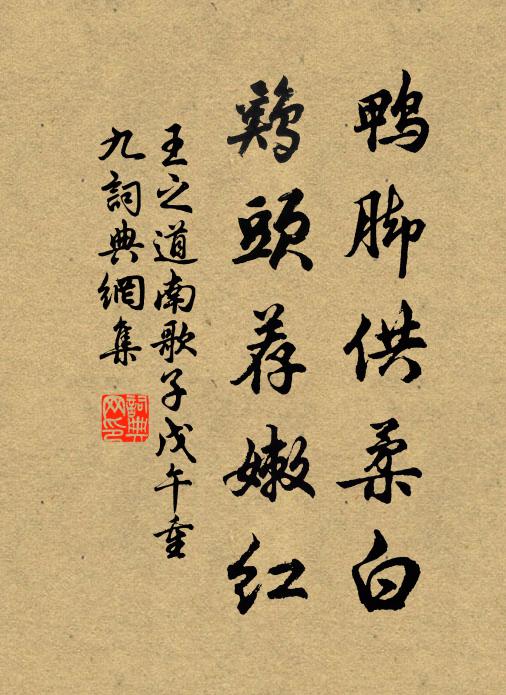 鸭脚供柔白
鷄頭荐嫩红
王之道南歌子戊午重
九詞典網集
詞典
网印